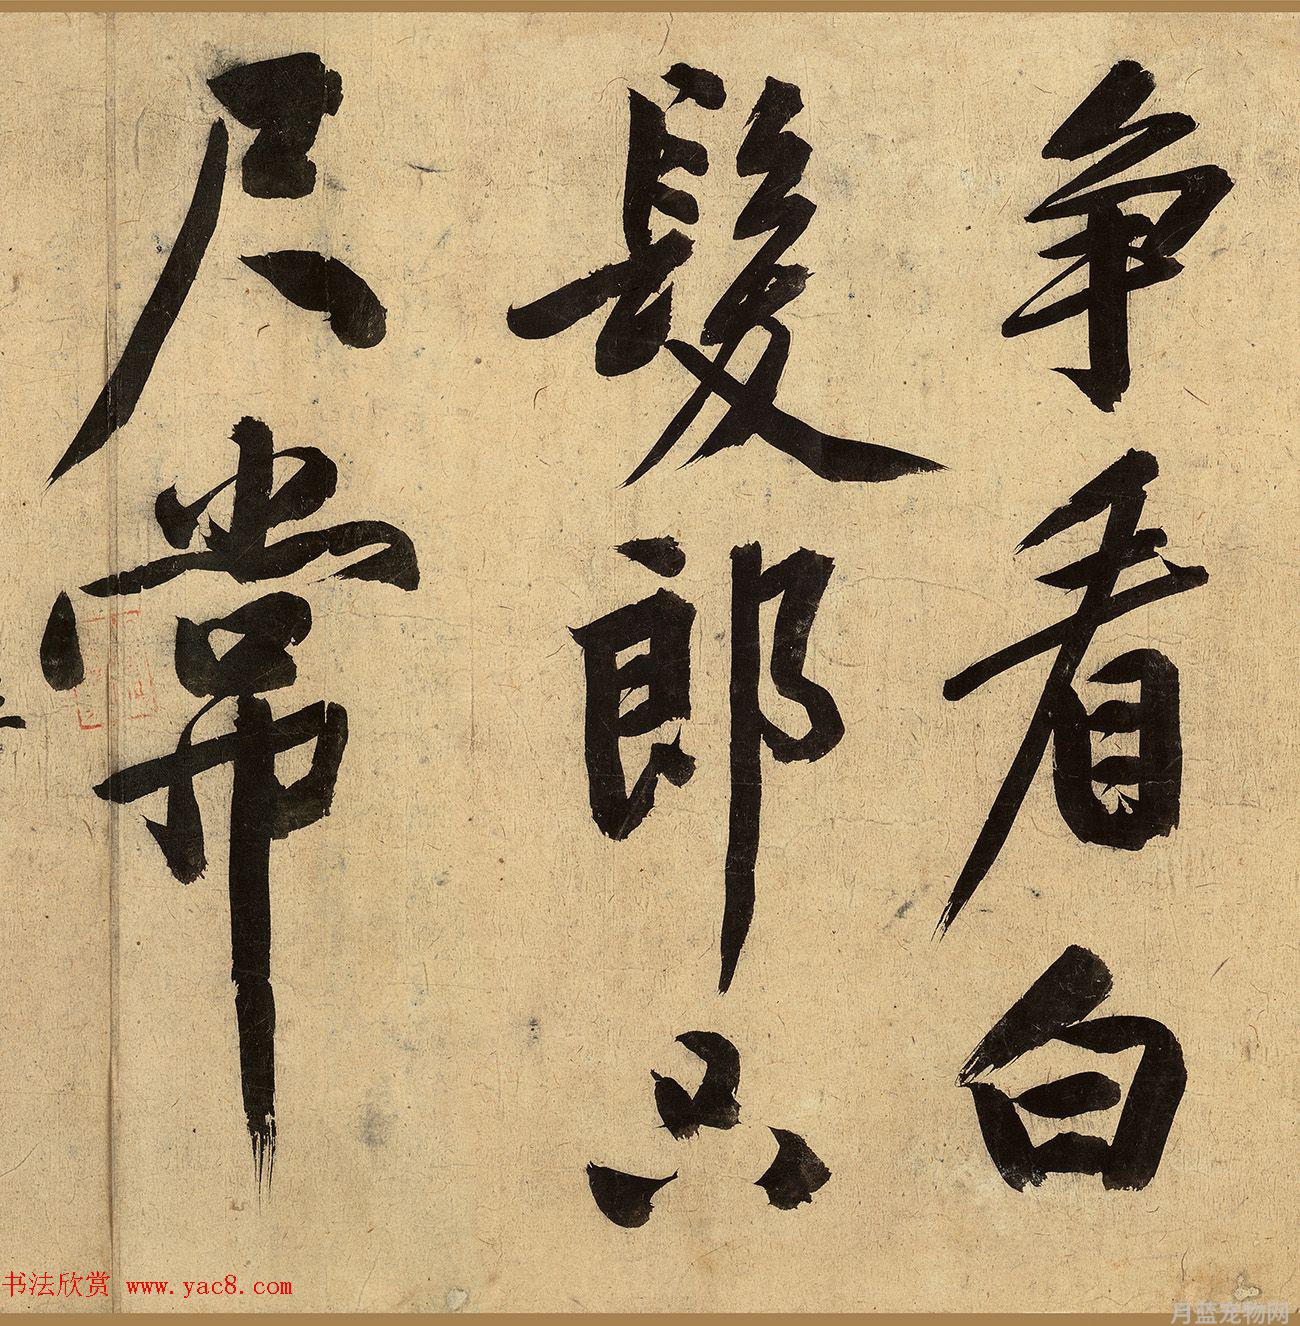 争看白
髮郎只
尺常
书法欣赏 www.yac8.com
月蓝宠物网